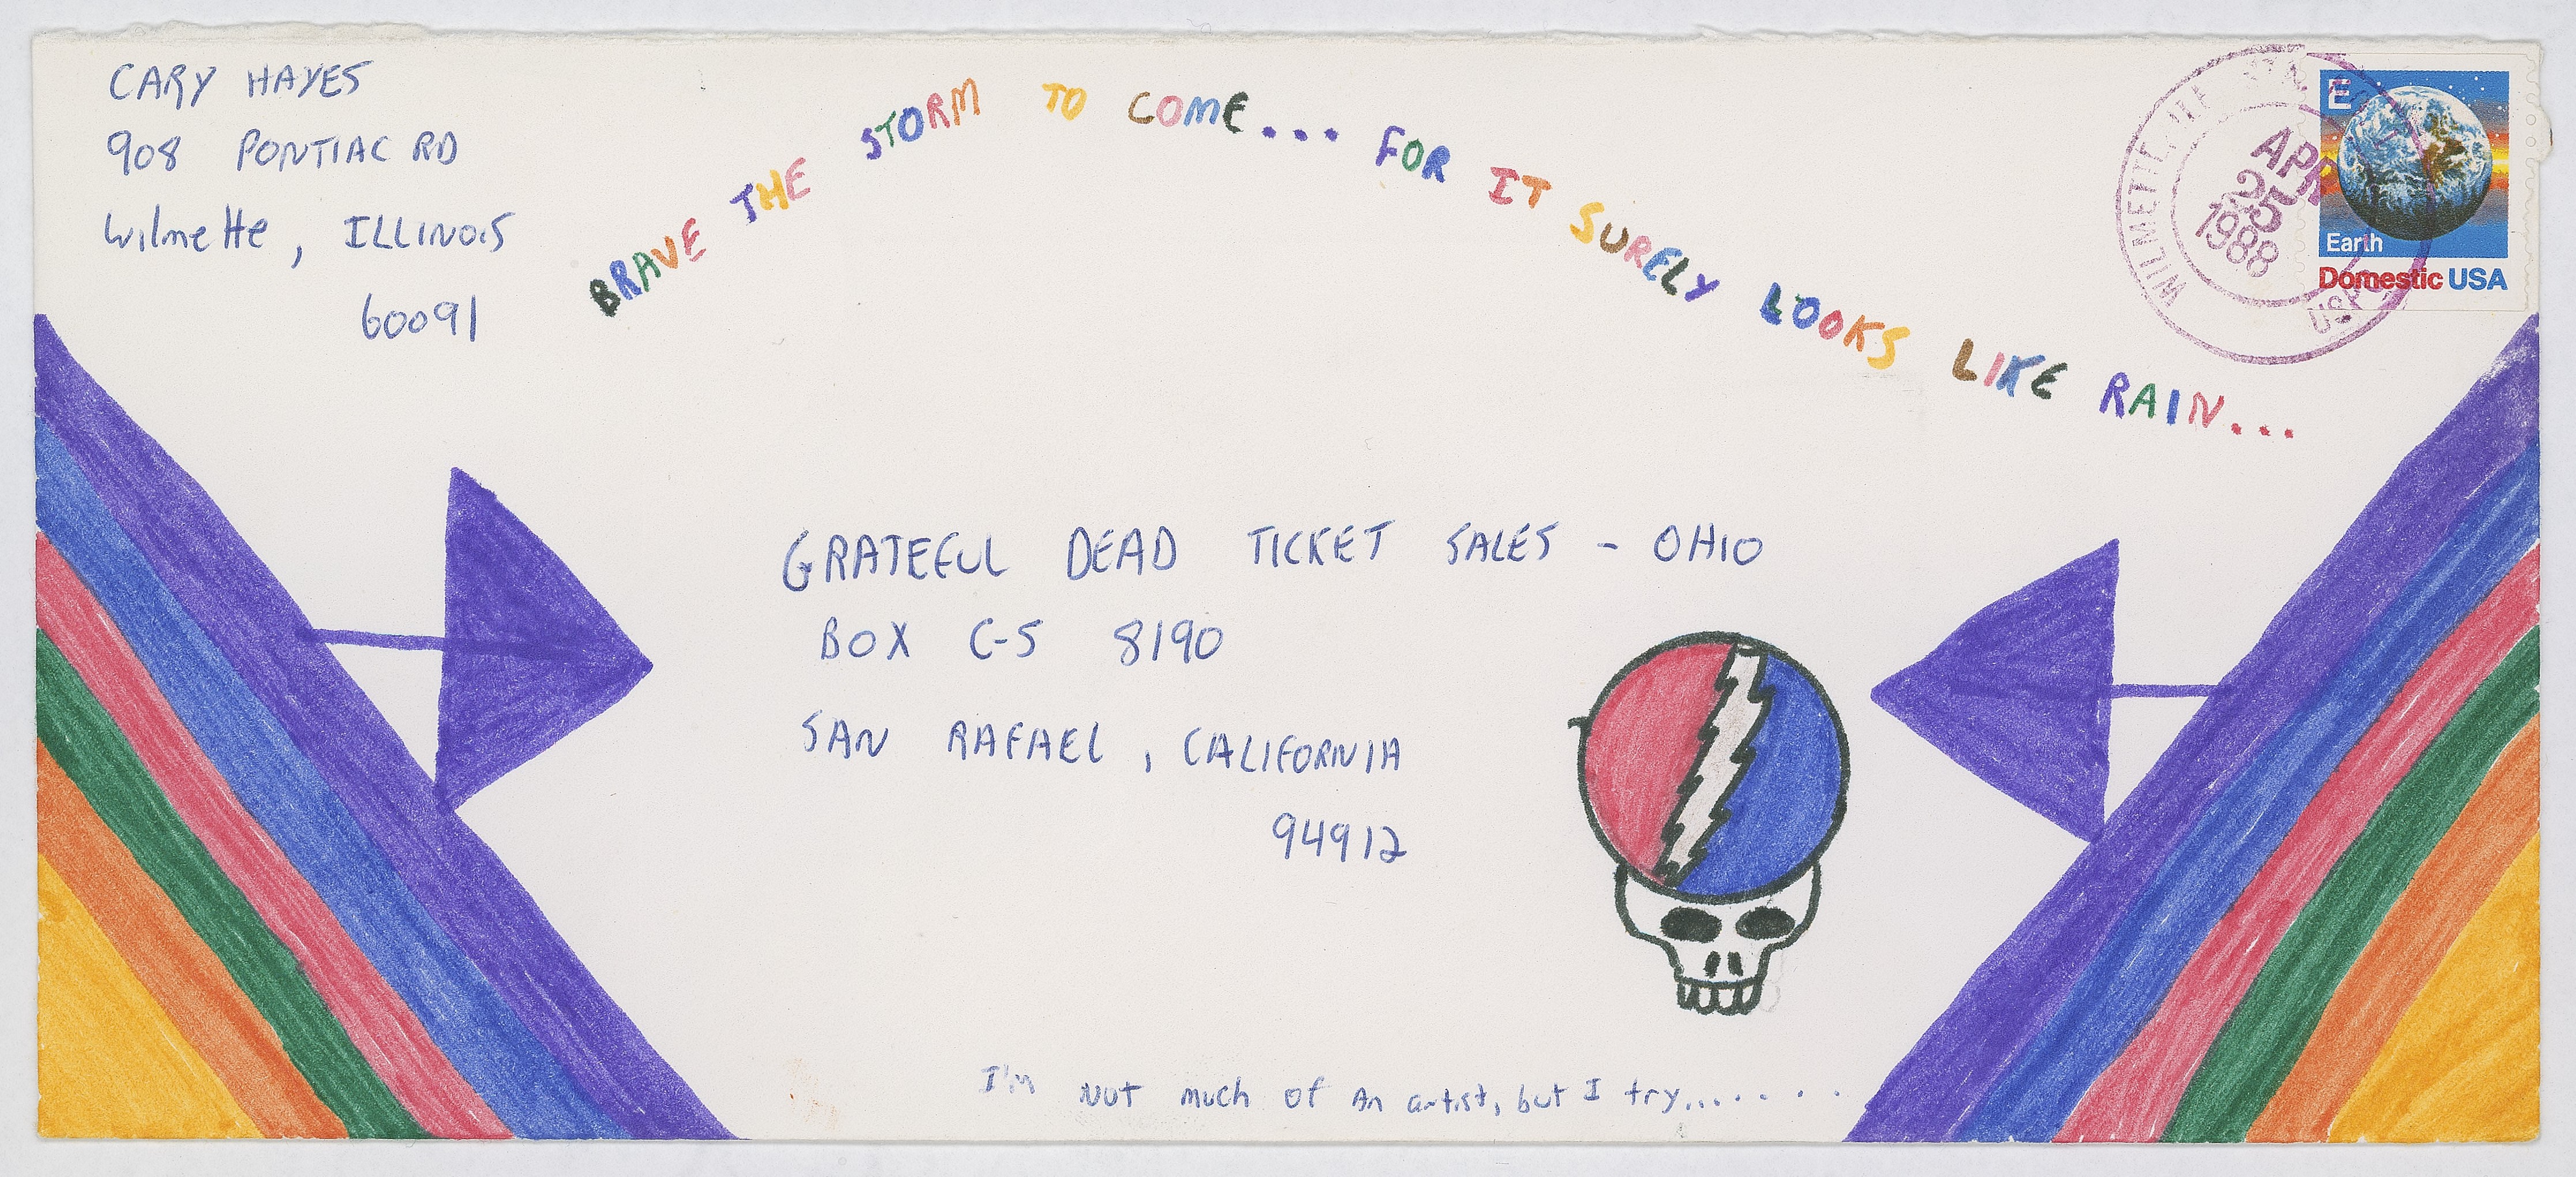 CARY HAYES
908 PONTIAC RD
Wilmette, ILLINOIS
60091
BRAVE THE STORM TO COME... FOR IT SURELY LOOKS LIKE RAIN...
WILMETTE
APR
25
1988
USPO
E
Earth
Domestic USA
GRATEFUL DEAD TICKET SALES - OHIO
BOX C-S 8190
SAN RAFAEL, CALIFORNIA
94912
I'm NOT much of An artist, but I try.........